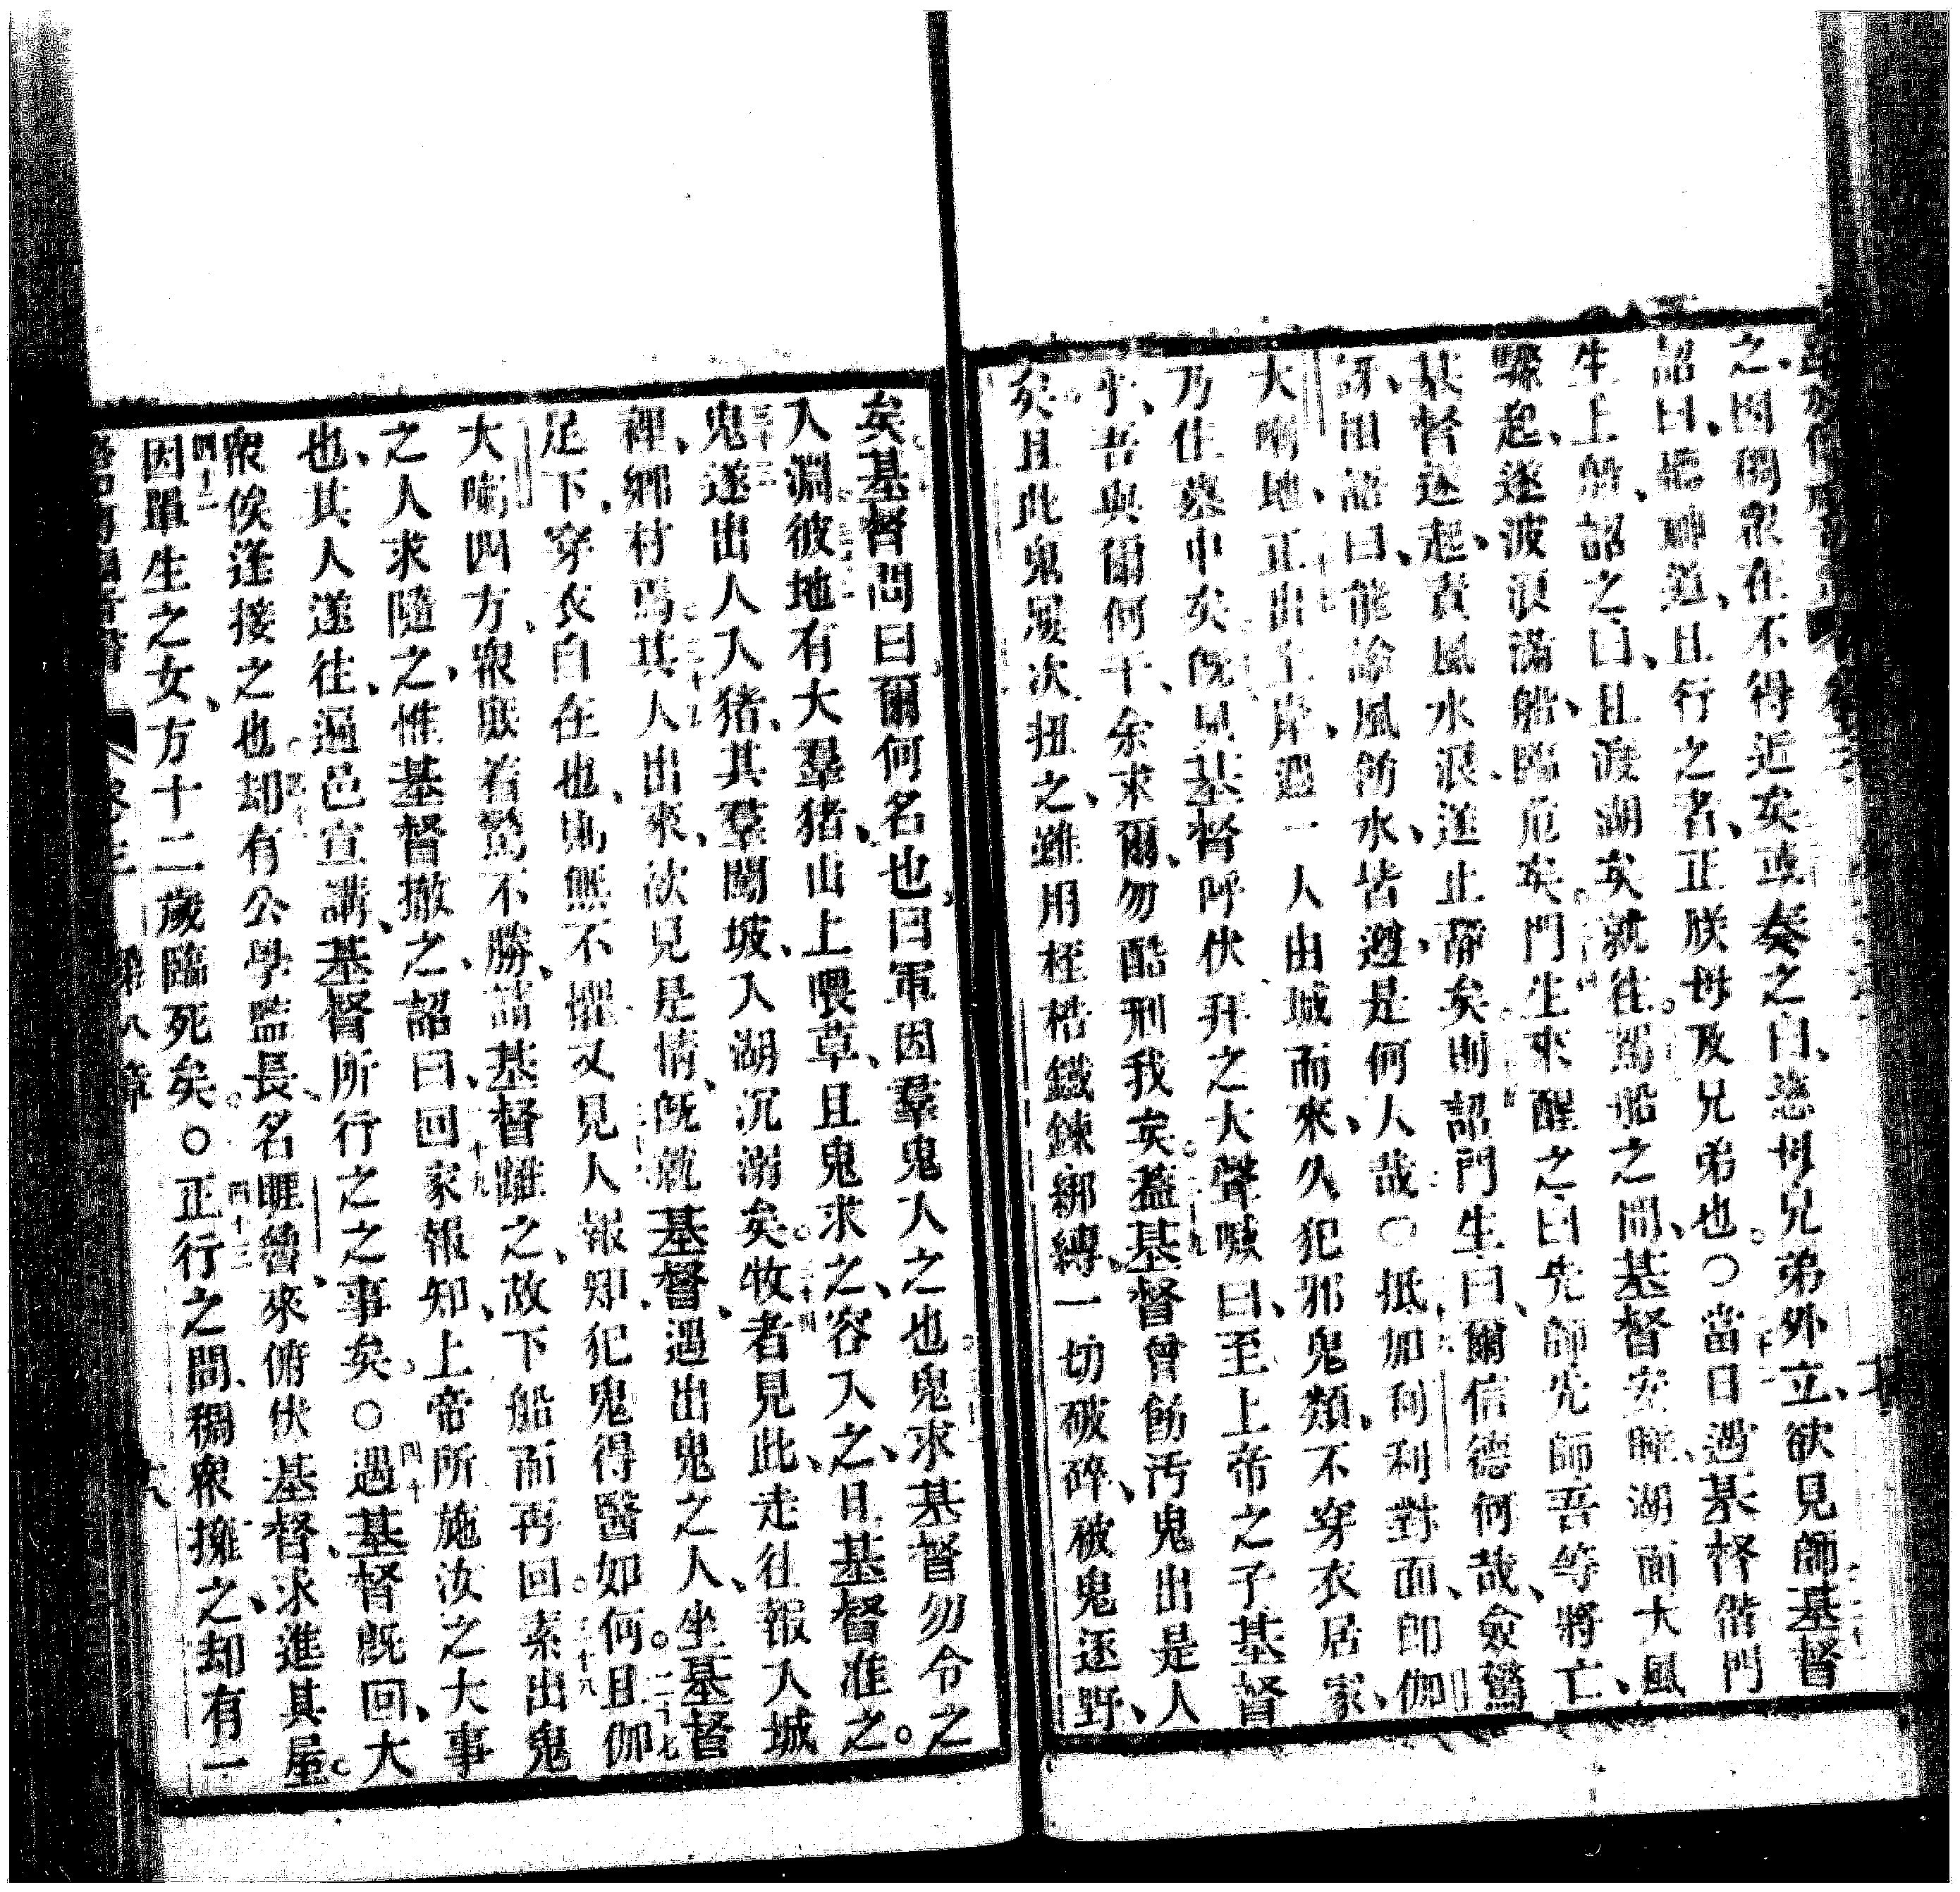 之、因稠眾在不得近矣或奏之曰、恐母兄弟外立、欲見師基督
詔曰、聽神道、且行之者、正朕母及兄弟也。〇當日遇基督偕門
生上船、詔之曰、且渡湖矣就往。駕船之間、基督安睡、湖面大風
驟起、遂波浪滿船、臨危矣門生來醒之曰先師先師吾等將亡、
基督遂起、責風水浪遂止靜矣則詔門生曰、爾信德何哉、僉驚
訝、相語曰、能諭風飭水、皆遵、是何人哉〇抵加利利對面、即伽
大嘶地、正出上岸、遇一人由城而來、久犯邪鬼類、不穿衣居家、
乃住墓中矣旣見基督呼伏拜之大聲喊曰、至上帝之子基督
乎、吾與爾何干、余求爾、勿酷刑我矣蓋基督曾飭汚鬼出是人
矣且此鬼屢次扭之、雖用桎梏鐵鍊綁縛、一切破碎、被鬼逐野、
矣基督問曰爾何名也、曰軍因羣鬼入之也鬼求基督勿令之
入淵彼地有大羣猪、山上喂草、且鬼求之、容入之、且基督准之。
鬼遂出人入猪、其羣闖坡、入湖沉溺矣。牧者見此、走往報入城
裡、鄉村焉其人出來、欲見是情、旣就基督、遇出鬼之人、坐基督
足下、穿衣自在也、焉無不懼又見人報知、犯鬼得醫如何。且伽
大嘶四方、眾厭着驚不勝、請基督離之、故下船而再回。素出鬼
之人求隨之、惟基督撤之、詔曰、回家報知、上帝所施汝之大事
也、其人遂往、遍邑宣講、基督所行之之事矣。〇遇基督旣回、大
眾俟逢接之也却有公學監長、名睚魯、來俯伏基督、求進其屋。
因單生之女、方十二歲臨死矣。〇正行之間、稠眾擁之、却有一
卷三 第八章